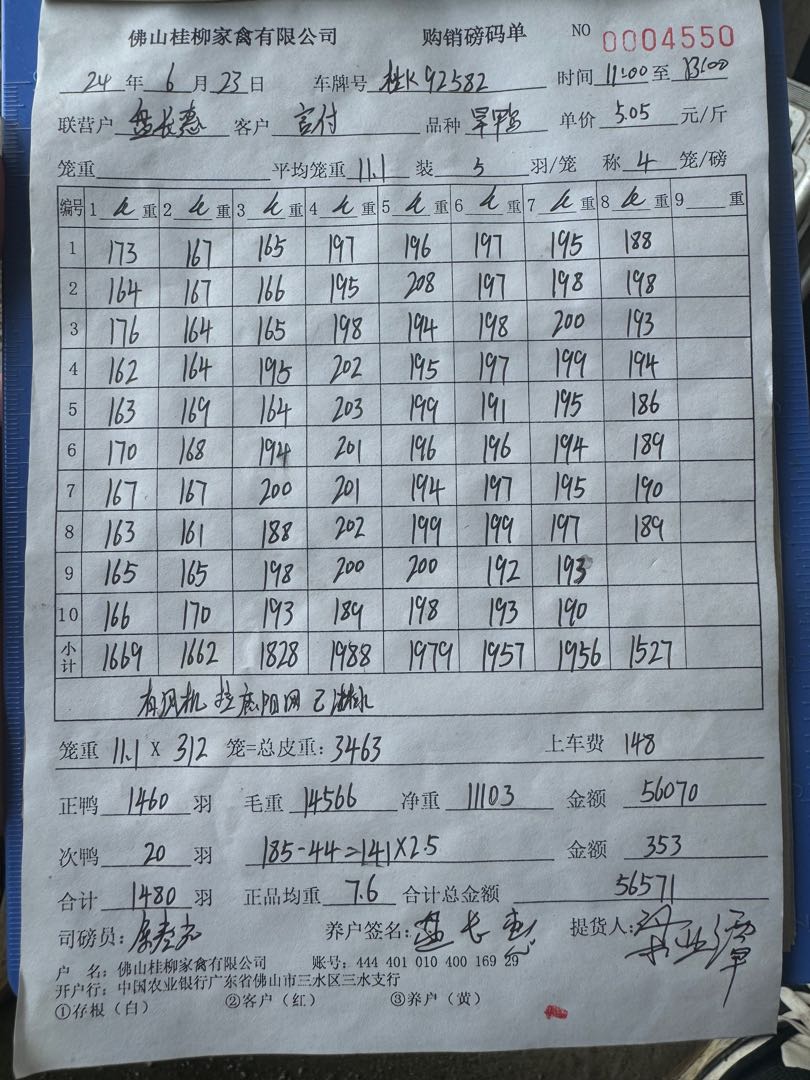 佛山桂柳家禽有限公司 购销磅码单 NO 0004550
24 年 6 月 23 日 车牌号 桂K92582 时间 11:00 至 13:00
联营户 盘长惠 客户 言付 品种 旱鸭 单价 5.05 元/斤
笼重 平均笼重 11.1 装 5 羽/笼 称 4 笼/磅
编号 1 重 2 重 3 重 4 重 5 重 6 重 7 重 8 重 9 重
1 173 167 165 197 196 197 195 188
2 164 167 166 195 208 197 198 198
3 176 164 165 198 194 198 200 193
4 162 164 195 202 195 197 199 194
5 163 169 164 203 199 191 195 186
6 170 168 194 201 196 196 194 189
7 167 167 200 201 194 197 195 190
8 163 161 188 202 199 199 197 189
9 165 165 198 200 200 192 193
10 166 170 193 189 198 193 190
小计 1669 1662 1828 1988 1979 1957 1956 1527
有风机 拉遮阳网 已淋水
笼重 11.1 X 312 笼=总皮重: 3463 上车费 148
正鸭 1460 羽 毛重 14566 净重 11103 金额 56070
次鸭 20 羽 185-44=141×2.5 金额 353
合计 1480 羽 正品均重 7.6 合计总金额 56571
司磅员: 养户签名: 盘长惠 提货人:
户 名: 佛山桂柳家禽有限公司 账号: 444 401 010 400 169 29
开户行: 中国农业银行广东省佛山市三水区三水支行
①存根（白） ②客户（红） ③养户（黄）